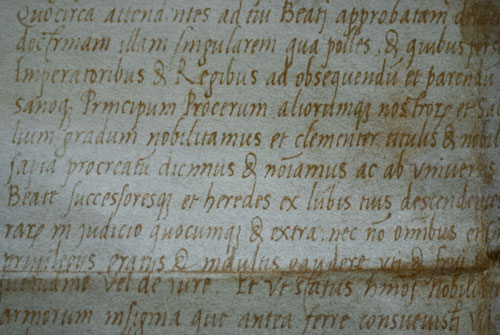 Quocirca attendentes ad tui Beati approbatam
doctrinam illam singularem qua polles, & quibus
Imperatoribus & Regibus ad obsequendū et parend
sanoq, Principum Procerum aliorumq, nostrorų et
lium gradum nobilitamus et clementer titulis &
procreatū dicimus & noīamus ac ab univers
Beate successoresq, et heredes ex lubis tuis descendent
in judicio quocumq, & extra: nec nō omībus
privilegiis gratiis & indultis gaudere uti &
vel de jure. Et ut status
armorum insignia que antea ferre consuevisti